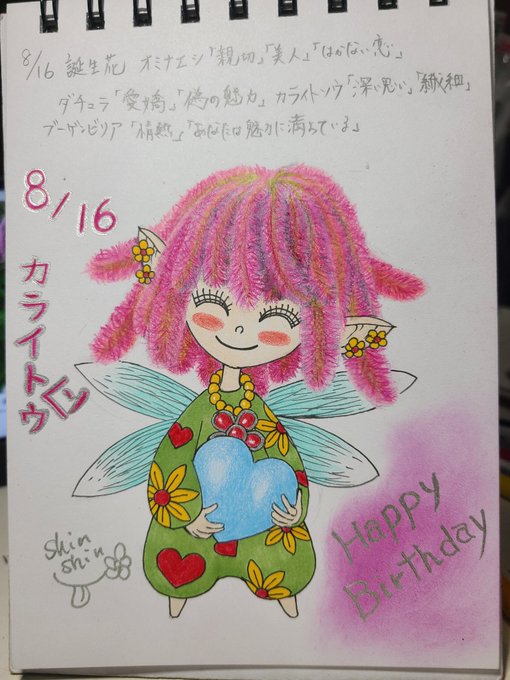 8/16 誕生花 オミナエシ「親切」「美人」「はかない恋」
ダチュラ「愛嬌」「偽りの魅力」 カライトソウ「深い思い」「繊細」
ブーゲンビリア「情熱」「あなたは魅力に満ちている」
8/16
カライトウくん
shin
shin
Happy
Birthday